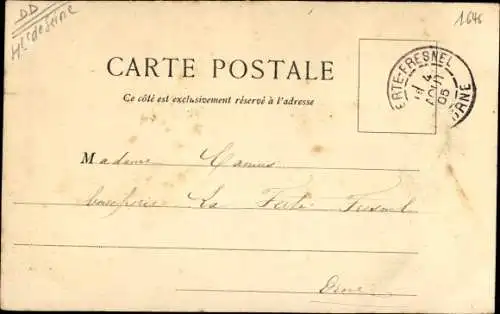 DD
Hts de Seine
1646
CARTE POSTALE
Ce côté est exclusivement réservé à l'adresse
FERTE-FRESNEL
4
AOUT
05
ORNE
Madame Camus
La Ferté Fresnel
Orne